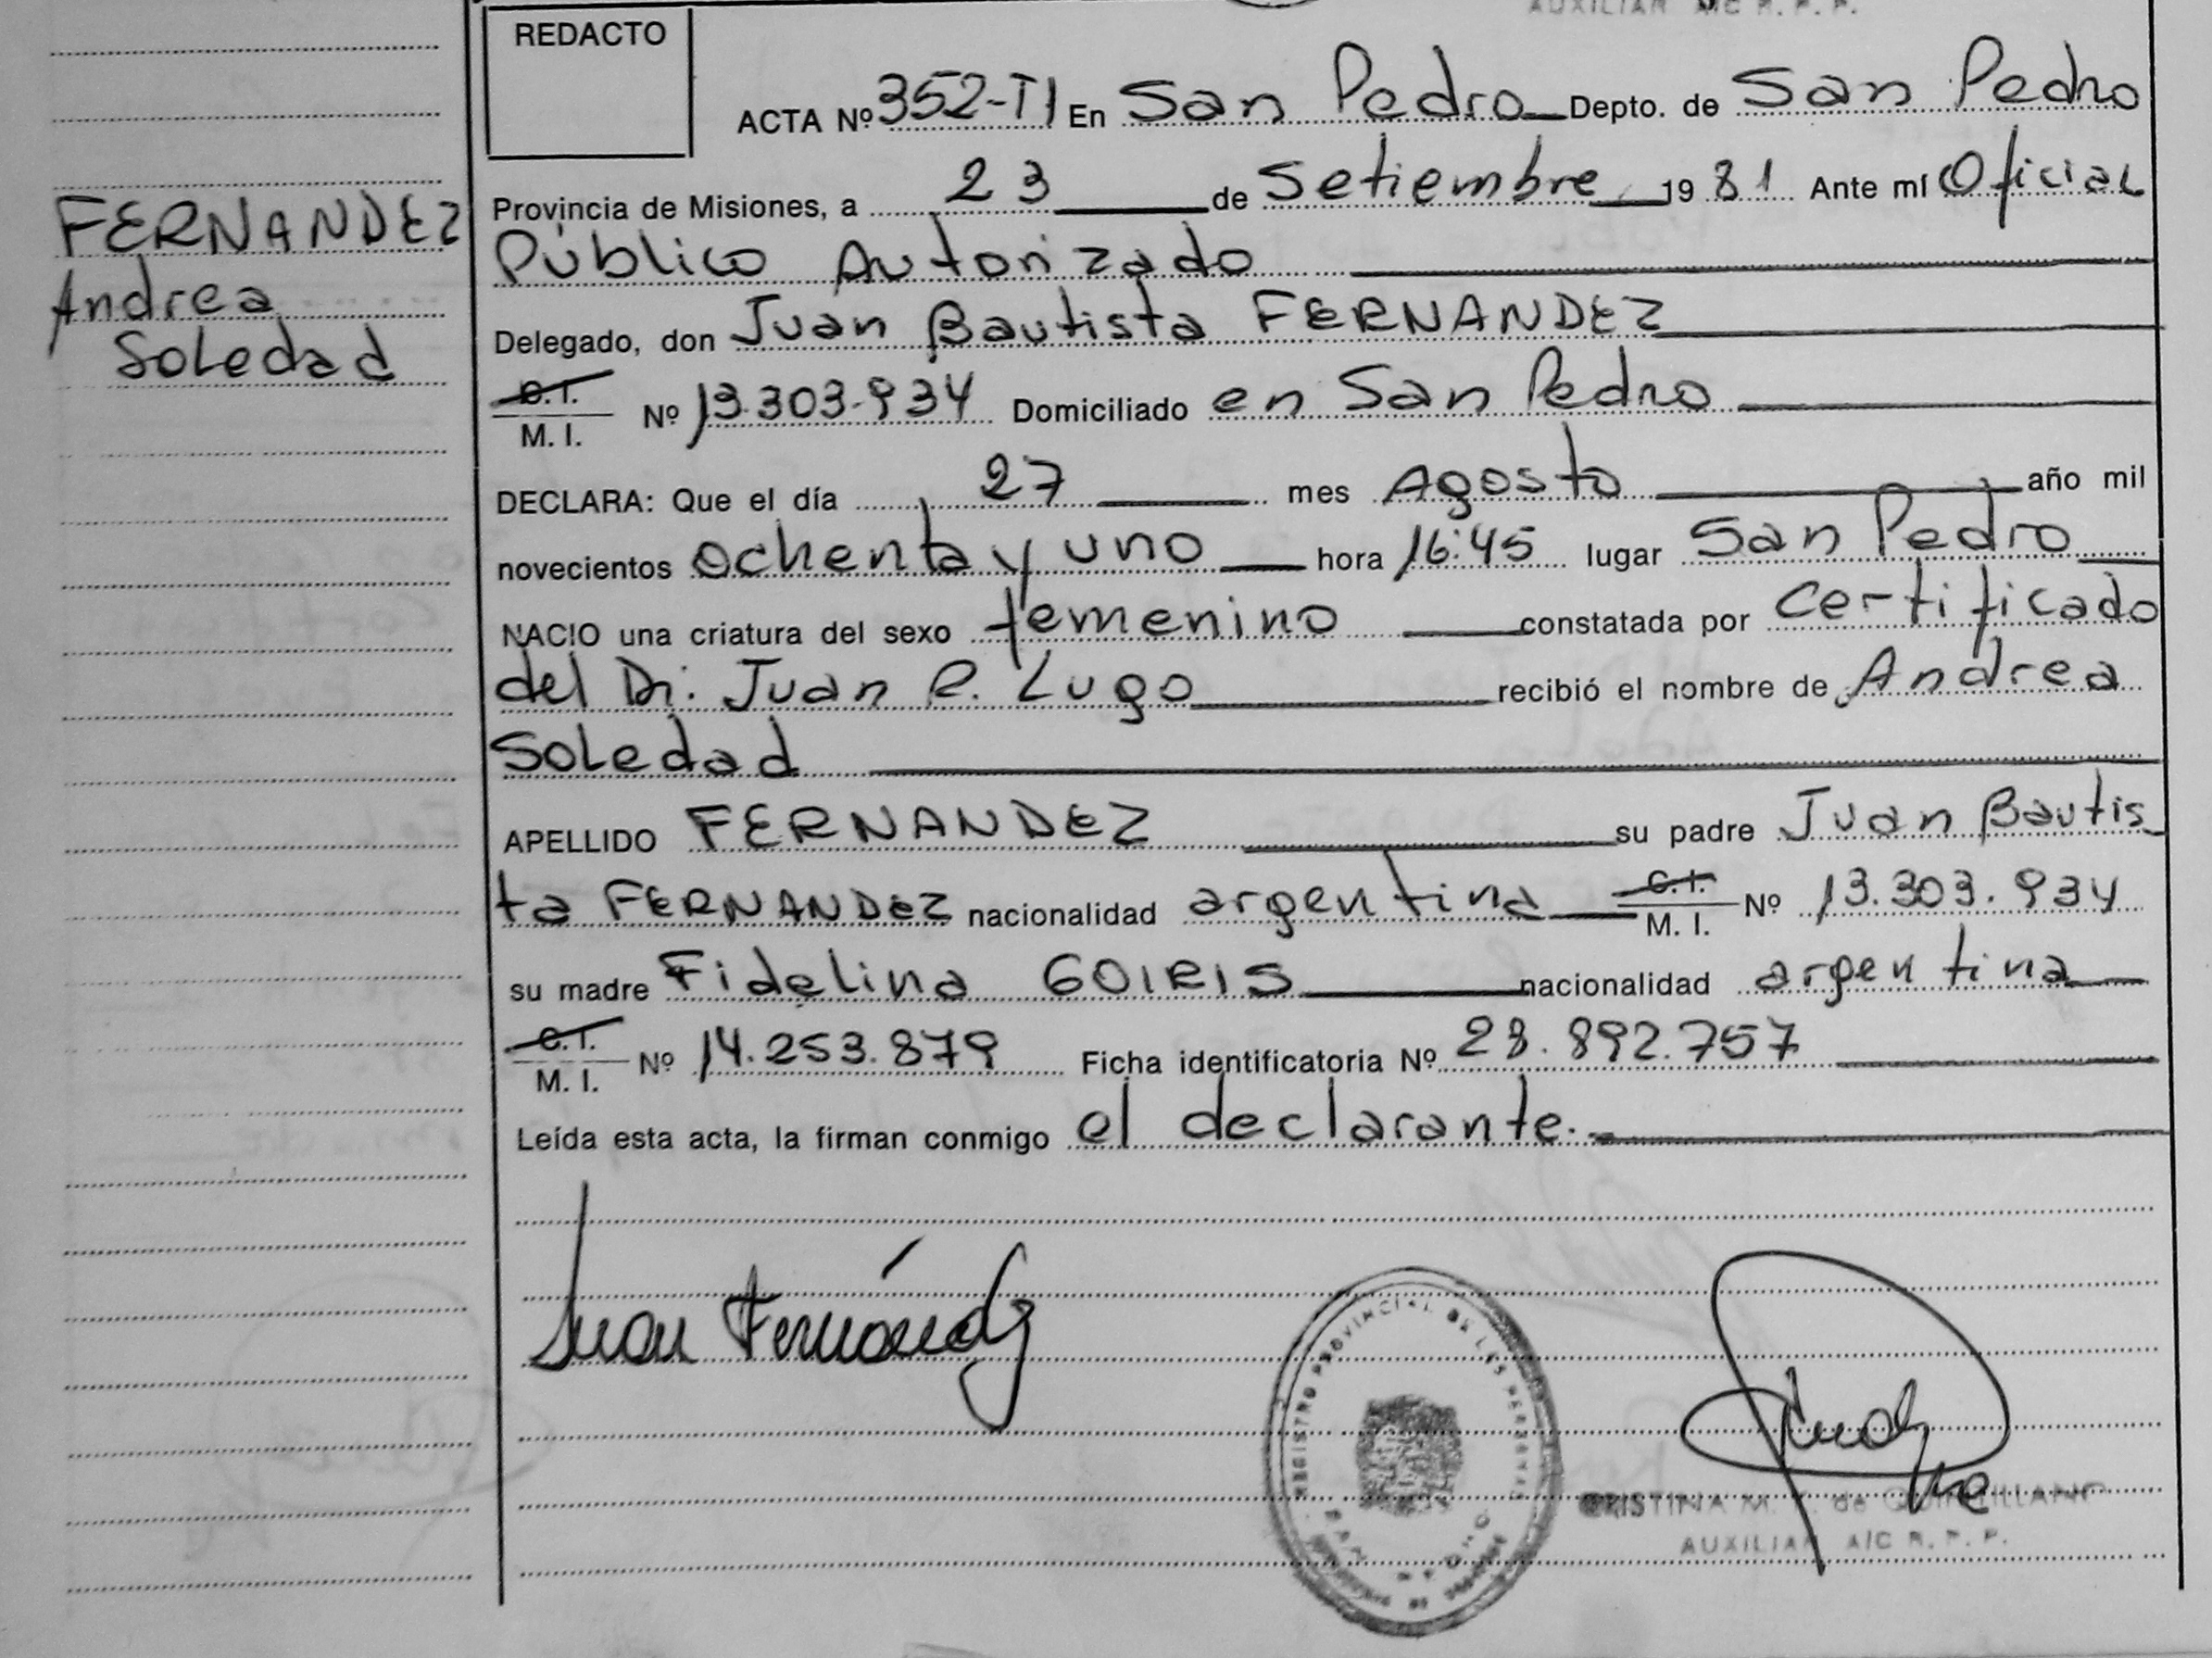 AUXILIAR A/C R. P. P.
REDACTO
ACTA Nº 352-TI En San Pedro Depto. de San Pedro
Provincia de Misiones, a 23 de Setiembre 1981 Ante mí Oficial
Público Autorizado
FERNANDEZ
Andrea
Soledad
Delegado, don Juan Bautista FERNANDEZ
C.I.
M. I. Nº 13.303.934 Domiciliado en San Pedro
DECLARA: Que el día 27 mes Agosto año mil
novecientos ochenta y uno hora 16:45 lugar San Pedro
NACIO una criatura del sexo femenino constatada por certificado
del Dr. Juan R. Lugo recibió el nombre de Andrea
Soledad
APELLIDO FERNANDEZ su padre Juan Bautis
ta FERNANDEZ nacionalidad argentina C.I. M. I. Nº 13.303.934
su madre Fidelina GOIRIS nacionalidad argentina
C.I.
M. I. Nº 14.253.879 Ficha identificatoria Nº 28.892.757
Leída esta acta, la firman conmigo el declarante.
Juan Fernández
REGISTRO PROVINCIAL DE LAS PERSONAS
SAN PEDRO
CRISTINA M. de QUINTILLANO
AUXILIAR A/C R. P. P.